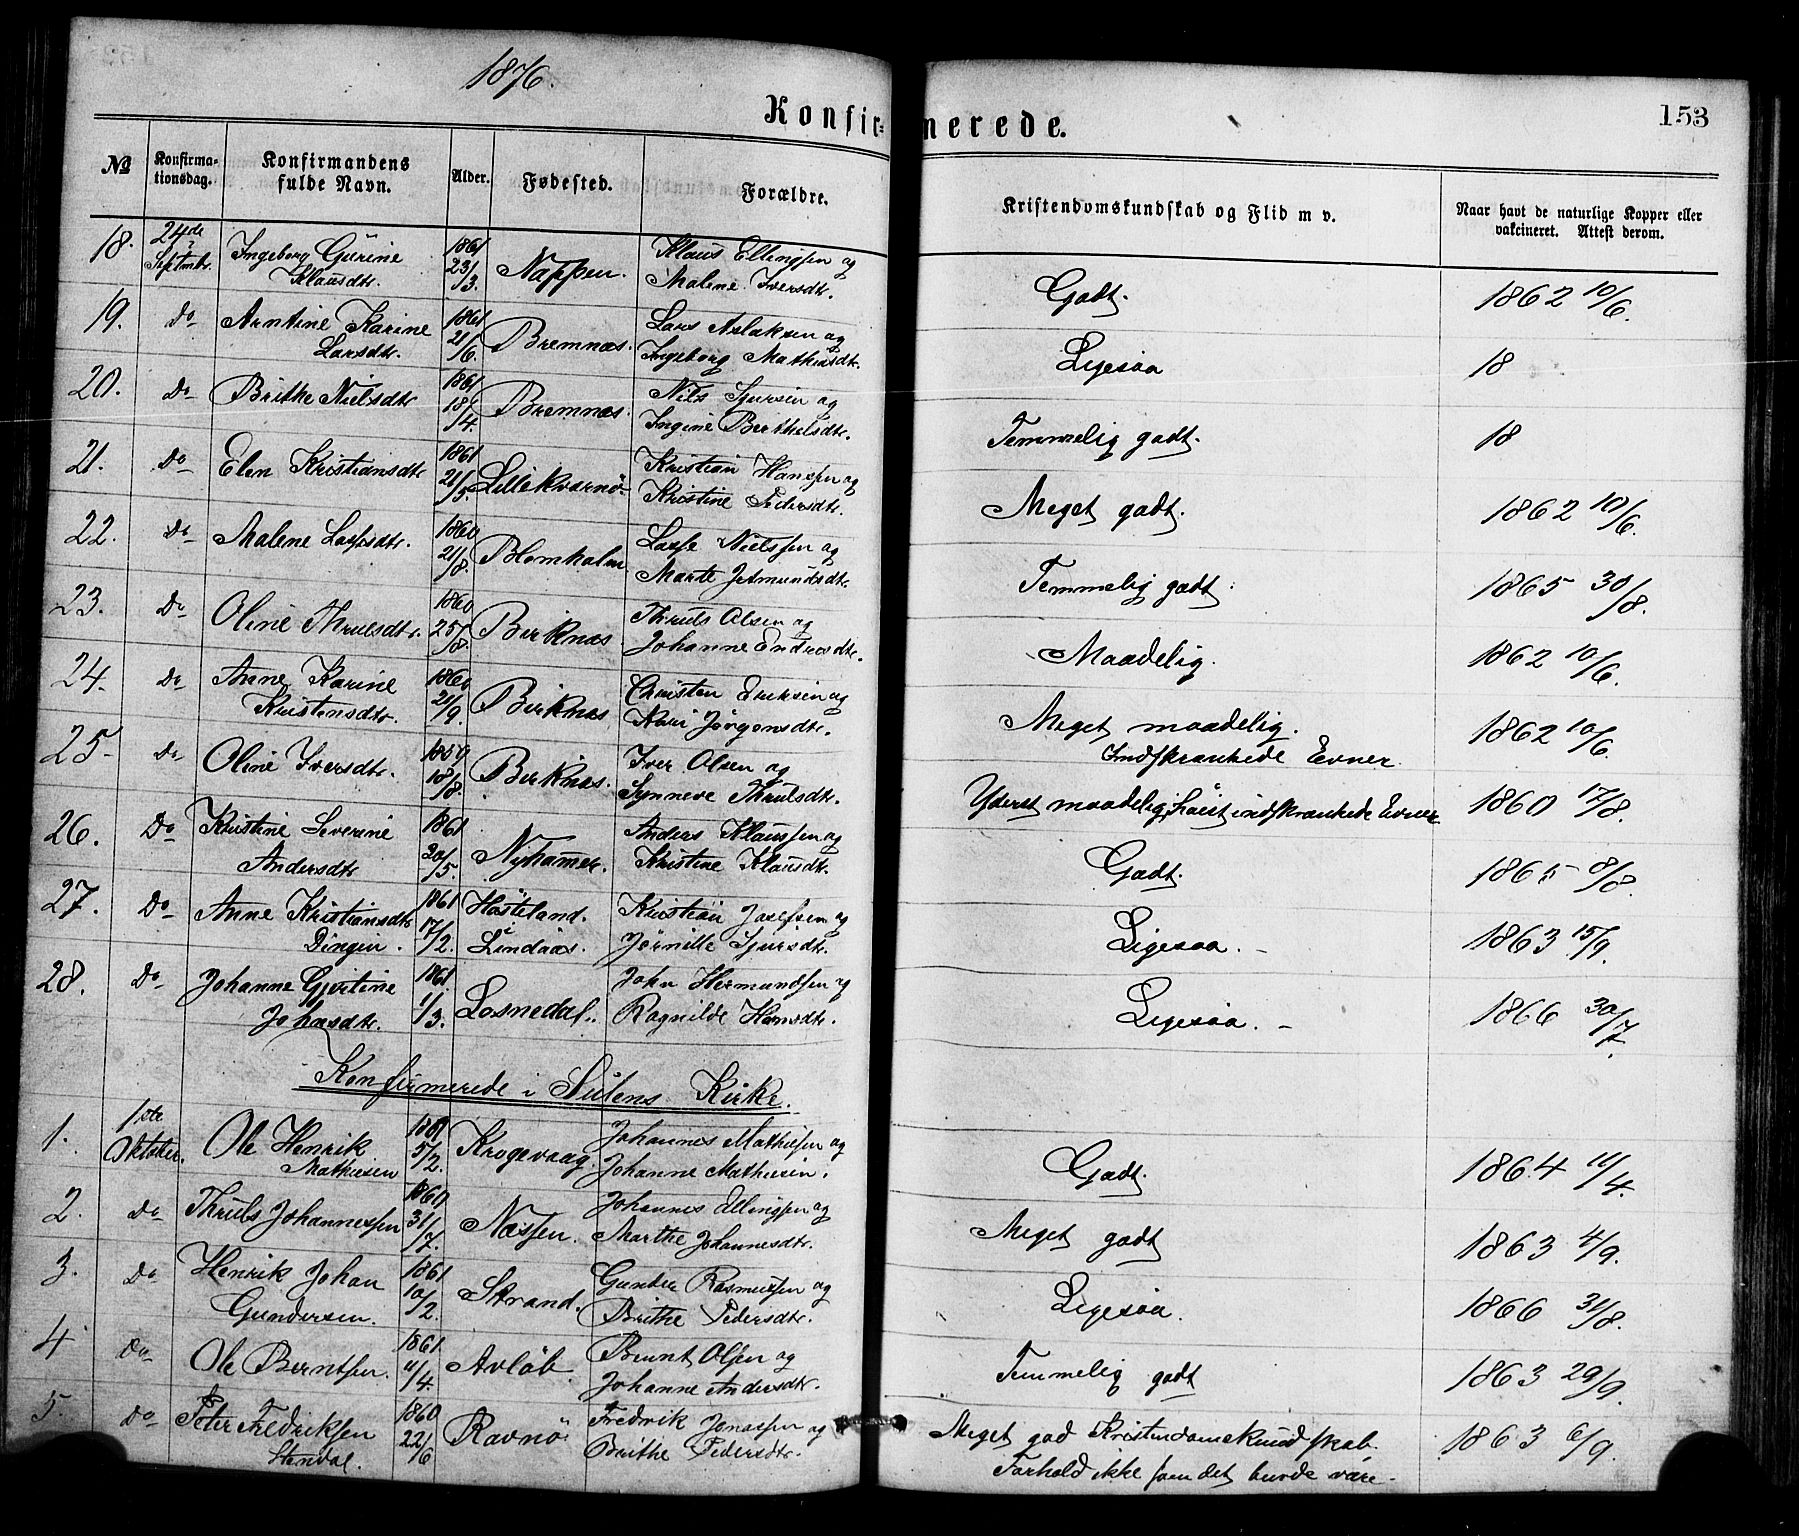 1876.
Konfir= merede.
153
No
Konfirma-
tionsdag.
Konfirmandens
fulde Navn.
Alder.
Fødested.
Forældre.
Kristendomskundskab og Flid m v.
Naar havt de naturlige Kopper eller
vakcineret. Attest derom.
18. 24de Septmbr. Ingeborg Gurine Klausdtr. 1861 23/3. Nappen. Klaus Ellingsen og Malene Iversdtr. Godt. 1862 10/6.
19. Do Arntine Karine Larsdtr. 1861 21/6. Bremnæs. Lars Aslaksen og Ingeborg Mathiasdtr. Ligesaa 18
20. Do Brithe Nielsdtr 1861 18/4. Bremnæs. Nils Sjursen og Ingine Berthelsdtr. Temmelig godt. 18
21. Do Elen Kristiansdtr 1861 21/5. Lillekvernö. Kristian Hansen og Kristine Pedersdtr. Meget godt. 1862 10/6.
22. Do Malene Lassesdtr. 1860 21/8. Blomholm Lasse Nielsen og Marte Jetmundsdtr. Temmelig godt. 1865 30/8.
23. Do Oline Thrulsdtr. 1860 25/8. Birknæs Thruls Olsen og Johanne Endresdtr. Maadelig. 1862 10/6.
24. Do Anne Karine Kristensdtr. 1860 21/9. Birknæs Christen Eriksen og Kari Jörgensdtr. Meget maadelig. Indskrænkede Evner 1862 10/6.
25. Do Oline Iversdtr. 1859 18/8. Birknæs. Iver Olsen og Synneve Thrulsdtr. Yderst maadelig, höist indskrænkede Evner 1860 17/8.
26. Do Kristine Severine Andersdtr 1861 20/5. Nyhamer. Anders Klaussen og Kristine Klausdtr. Godt. 1865 8/8.
27. Do Anne Kristiansdtr Dingen. 1861 17/2. Hösteland. Lindaas. Kristian Josefsen og Jörnille Sjursdtr. Ligesaa. 1863 15/9.
28. Do Johanne Gjertine Johnsdtr. 1861 1/3. Losnedal. John Hermundsen og Ragnilde Hansdtr. Ligesaa. 1866 30/7.
Konfirmerede i Sulens Kirke.
1. 1ste Oktober. Ole Henrik Mathiesen 1861 5/2. Krogevaag. Johannes Mathiesen og Johanne Mathiesen. Godt. 1864 11/4.
2. Do Thruls Johannessen 1860 31/7. Næssen. Johannes Ellingsen og Marthe Johannesdtr. Meget godt 1863 4/9.
3. Do Henrik Johan Gundersen. 1861 10/2. Strand. Gunder Rasmussen og Brithe Pedersdtr. Ligesaa. 1866 31/8.
4 Do Ole Berntsen. 1861 11/4. Avlöb. Bernt Olsen og Johanne Andersdtr. Temmelig godt 1863 29/9.
5. Do Peter Fredriksen Stendal. 1860 22/6 Ravnö Fredrik Jonassen og Brithe Pedersdtr. Meget god Kristendomskundskab. Forhold ikke som det burde være. 1863 6/9.